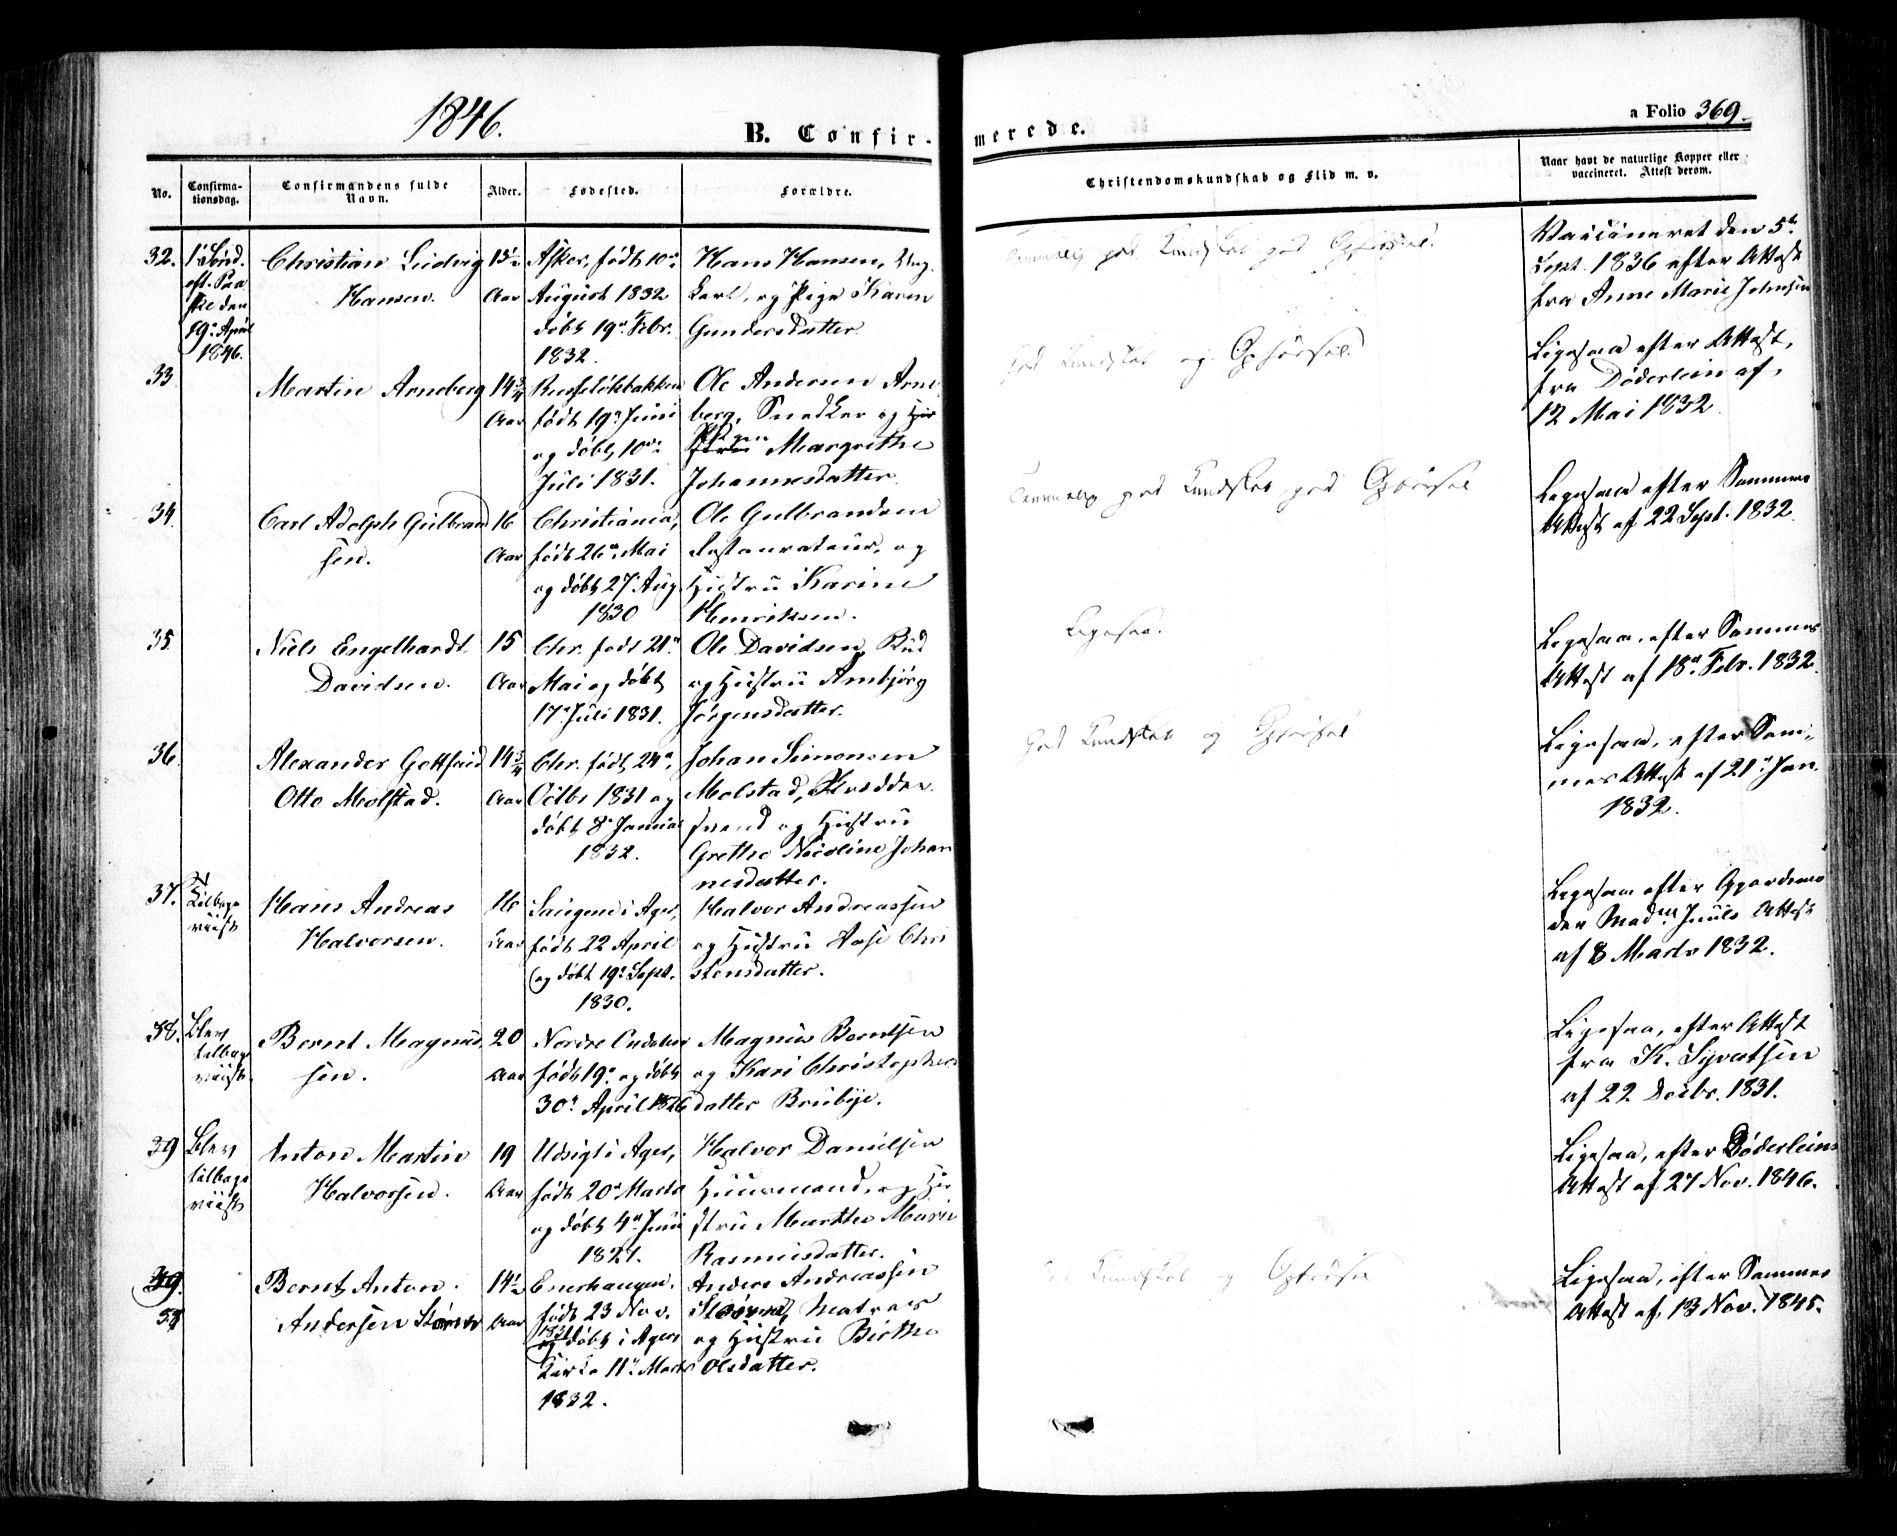 1846.
B. Confirmerede.
a Folio 369.
No.
Confirma-
tionsdag.
Confirmandens fulde
Navn.
Alder.
Fødested.
Forældre.
Christendomskundskab og Flid m. v.
Naar havt de naturlige Kopper eller
vaccineret. Attest derom.
32.
1ste Sønd.
eft. Paa
ske den
19de April
1846.
Christian Ludvig
Hansen.
13½
Aar
Asker, født 10de
August 1832
døbt 19de Febr.
1832.
Hans Hansen, Ung-
karl, og Pige Karen
Gundersdatter.
Temmelig god Kundskab god Opførsel.
Vaccineret den 5te
Sept. 1836 efter Attest
fra Anne Marie Johnsen
33
Martin Arneberg
14¾
Aar
Ruseløkbakken
født 19de Juni
og døbt 10de
Juli 1831.
Ole Andersen Arne
berg, Snedker og Hu
Pigen Margrethe
Johannesdatter.
God Kundskab og Opførsel.
Ligesaa efter Attest,
fra Döderlein af,
12 Mai 1832.
34.
Carl Adolph Gulbrand
sen.
16
Aar
Christiania,
født 26de Mai
og døbt 27 Aug.
1830
Ole Gulbrandsen
Restaurateur, og
Hustru Karine
Henriksen.
Temmelig god Kundskab god Opførsel
Ligesaa efter Sammes
Attest af 22 Sept. 1832.
35.
Niels Engelhardt
Davidsen.
15
Aar
Chr. født 21de
Mai og døbt
17de Juli 1831.
Ole Davidsen, Bud
og Hustru Anbjörg
Jörgensdatter.
Ligesaa.
Ligesaa, efter Sammes
Attest af 18de Febr. 1832.
36.
Alexander Gottfried
Otto Molstad.
14¾
Aar
Chr. født 24de
Octbr 1831 og
døbt 8de Januar
1832.
Johan Simonsen
Molstad, Skrædder
svend og Hustru
Grethe Nicoline Johan
nesdatter.
God Kundskab og Opførsel
Ligesaa, efter Sam-
mes Attest af 21de Jan.
1832.
37.
Tilbage
viist
Hans Andreas
Halvorsen.
16
Aar
Saugene i Ager,
født 22 April
og døbt 19de Sept.
1830.
Halvor Andreassen
og Hustru Aase Chri
stensdatter.
Ligesaa efter Gjordemo
der Madm Juuls Attest
af 8 Marts 1832.
38.
Blev
tilbage
viist.
Bernt Magnus
sen.
20
Aar
Nordre
født 19de og døbt
30te April 1826
Magnus Berntsen
og Kari Christophers
datter Brubye.
Ligesaa, efter Attest
fra K. Syvertsen
af 22 Decbr. 1831.
39
Blev
tilbage
viist
Anton Martin
Halvorsen.
19
Aar
Udsigt i Ager,
født 20de Marts
og døbt 4de Juni
1827.
Halvor Danielsen
Huusmand, og Hu
stru Marthe Marie
Rasmusdatter.
Ligesaa, efter Döderleins
Attest af 27 Nov. 1846.
39.
Bernt Anton
Andersen Störner
14½
Aar
Enerhaugen.
født 23 Nov.
1831
og døbt i Agers
Kirke 11te Marts
1832.
Anders Andreassen
Matros
og Hustru Birthe
Olsdatter.
God Kundskab og Opførsel
Ligesaa, efter Sammes
Attest af 13 Nov. 1845.